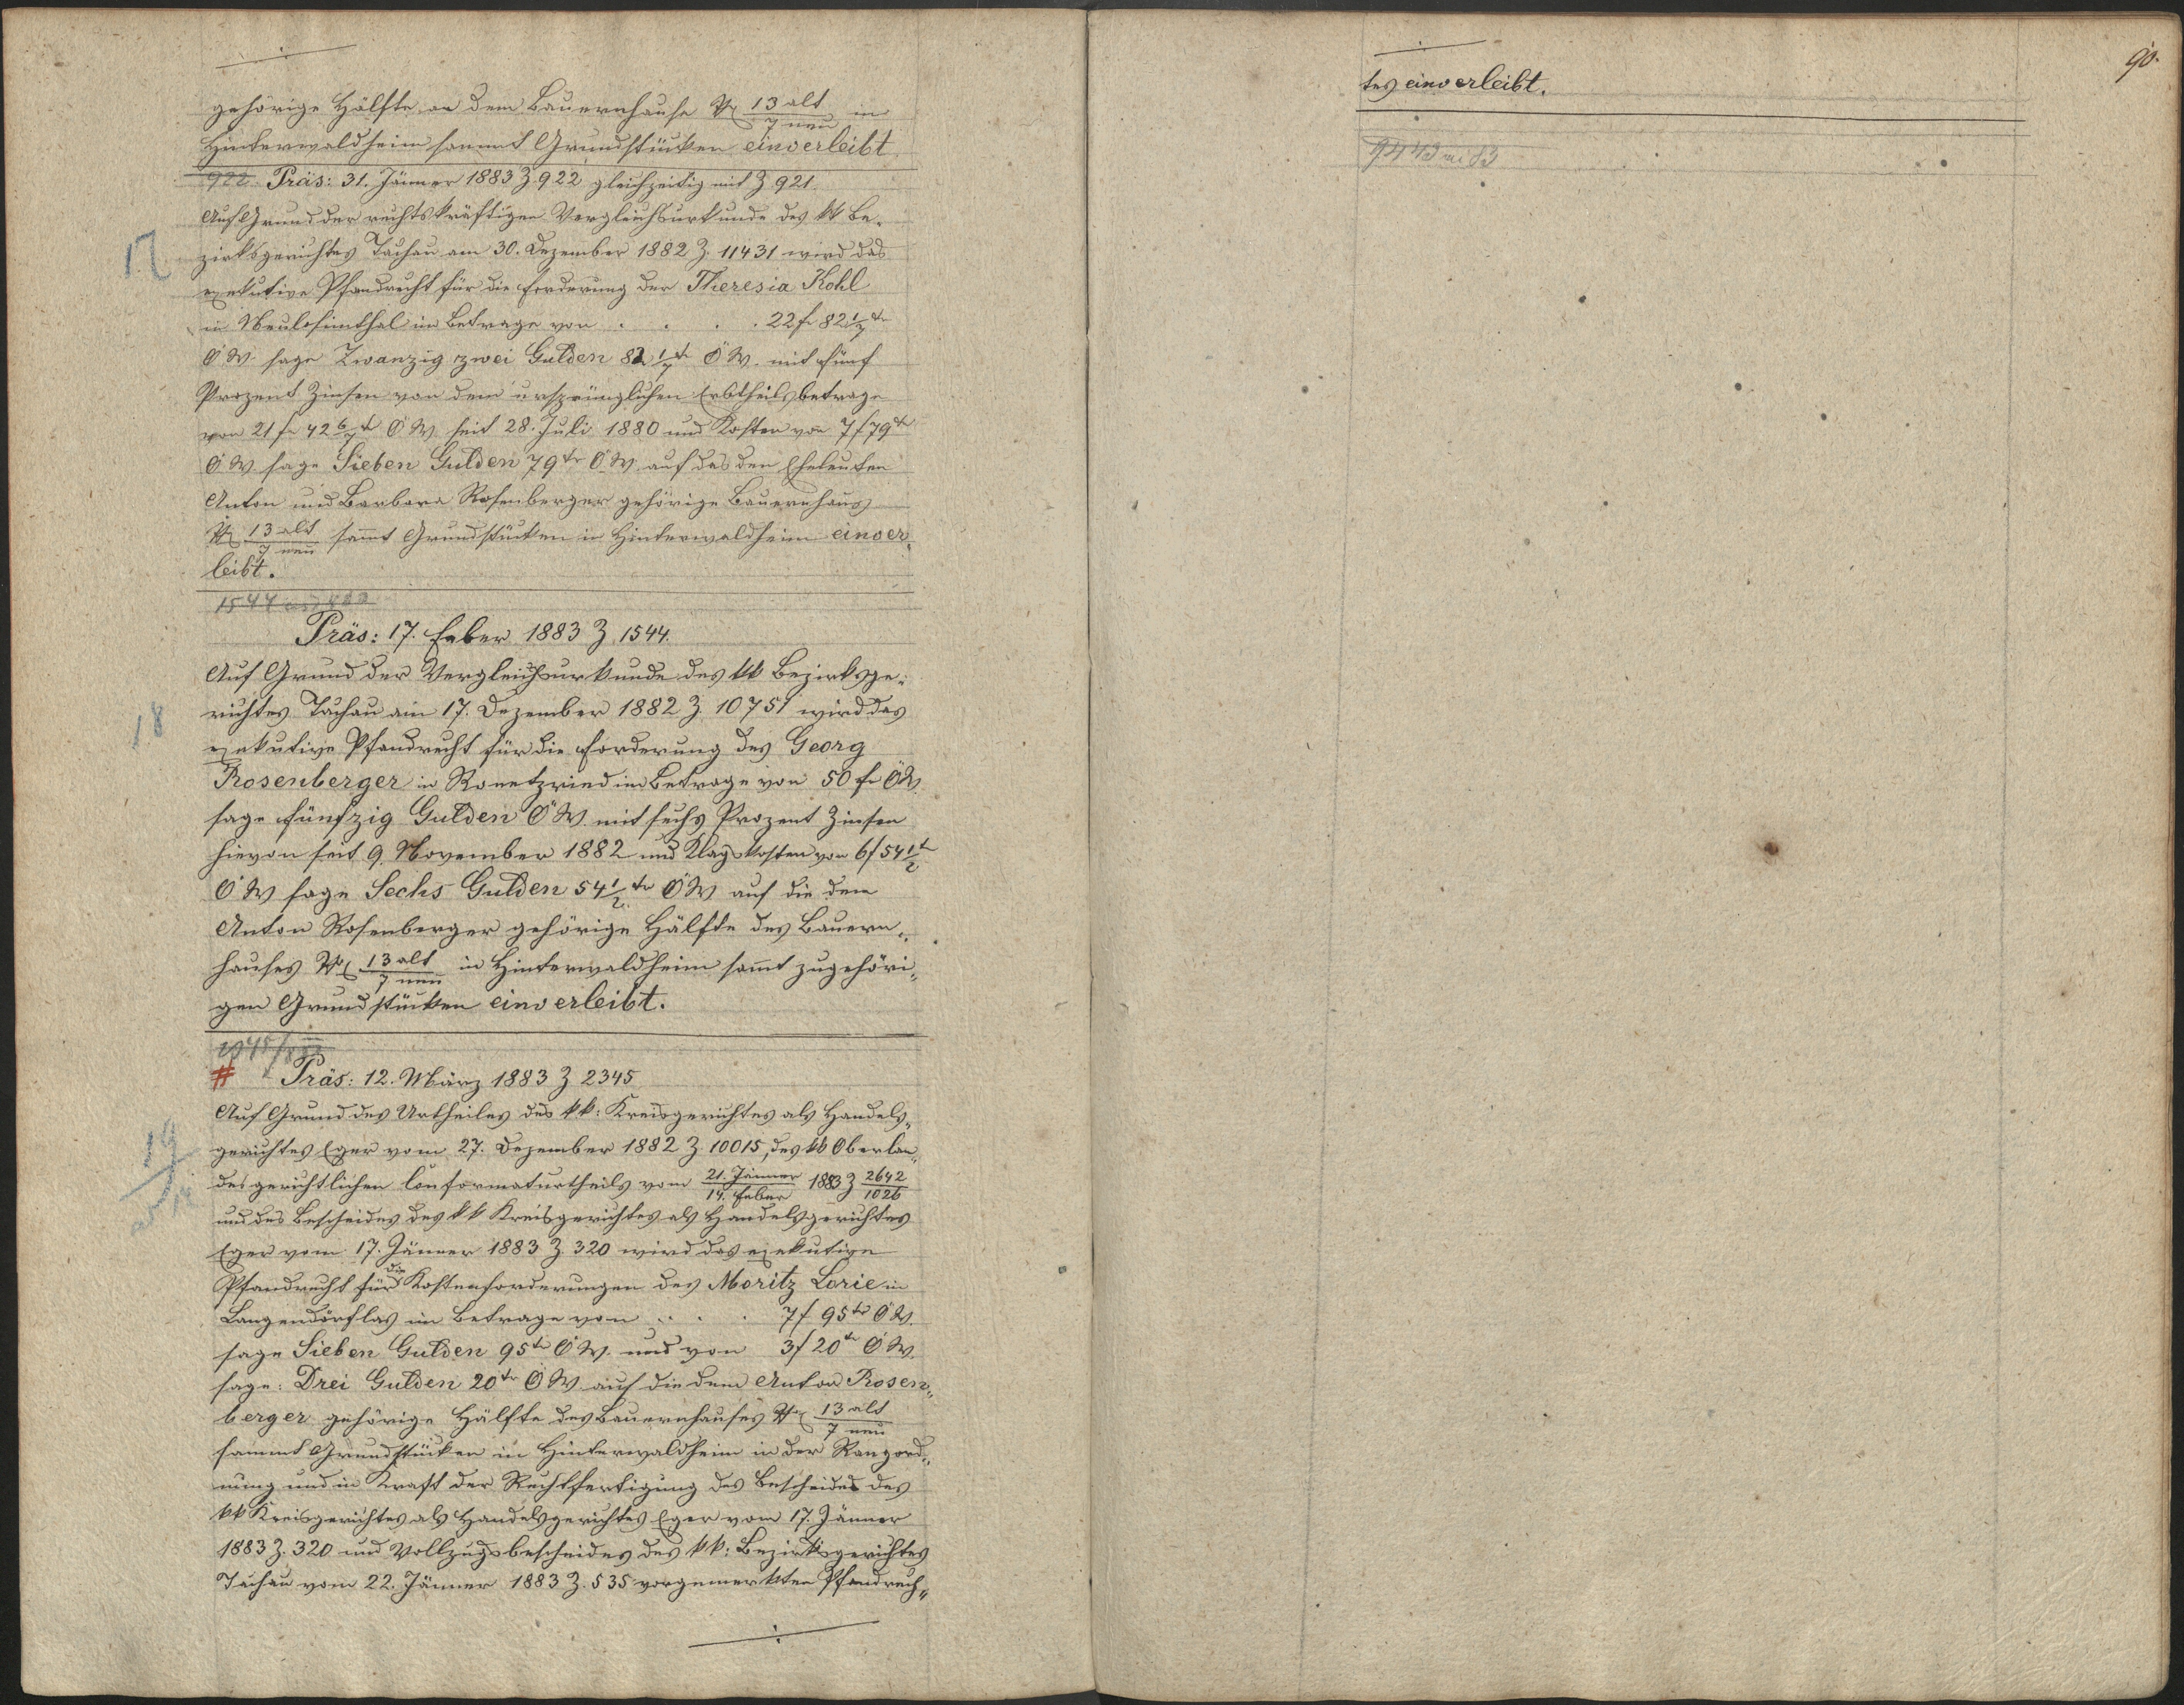 gehörige Hälfte an dem Bauernhause № 13 alt / 7 neu in
Hinterwaldheim sammt Grundstücken einverleibt
922 Präs: 31. Jänner 1883 Z. 922 gleichzeitig mit Z 921.
17.
Auf Grund der rechtskräftigen Vergleichsurkunde des kk Be-
zirksgerichtes Tachau am 30. Dezember 1882 Z. 11431 wird das
exekutive Pfandrecht für die Forderung der Theresia Kohl
in Neulosimthal im Betrage von . . . . 22 f 82 1/7 kr
ÖW. sage Zwanzig zwei Gulden 82 1/7 kr ÖW. mit fünf
Prozent Zinsen von dem ursprünglichen Erbtheilsbetrage
von 21 f 42 6/7 kr ÖW. seit 28. Juli 1880 und Kosten von 7 f 79 kr
ÖW. sage Sieben Gulden 79 kr ÖW. auf das den Eheleuten
Anton und Barbara Rosenberger gehörige Bauernhaus
№ 13 alt / 7 neu sammt Grundstücken in Hinterwaldheim einver-
leibt.
1544
Präs: 17. Feber 1883 Z 1544.
18
Auf Grund der Vergleichsurkunde des kk Bezirksge-
richtes Tachau am 17. Dezember 1882 Z. 10751 wird das
exekutive Pfandrecht für die Forderung des Georg
Rosenberger in Ronetzried im Betrage von 50 f ÖW.
sage fünfzig Gulden ÖW. mit sechs Prozent Zinsen
hievon seit 9. November 1882 und Klagskosten von 6 f 54 1/2 kr
ÖW sage Sechs Gulden 54 1/2 kr ÖW auf die dem
Anton Rosenberger gehörige Hälfte des Bauern-
hauses № 13 alt / 7 neu in Hinterwaldheim sammt zugehöri-
gen Grundstücken einverleibt.
# Präs: 12. März 1883 Z 2345
19
Auf Grund des Urtheiles des kk: Kreisgerichtes als Handels-
gerichtes Eger vom 27. Dezember 1882 Z. 10015, des kk Oberlan-
desgerichtlichen Conformaturtheils vom 21. Jänner / 14. Feber 1883 Z 2642 / 1026
und des Bescheides des kk Kreisgerichtes als Handelsgerichtes
Eger vom 17. Jänner 1883 Z. 320 wird das exekutive
Pfandrecht für die Kostenforderungen des Moritz Lorie in
Langendörflas im Betrage von . . . 7 f 95 kr ÖW.
sage Sieben Gulden 95 kr ÖW. und von 3 f 20 kr ÖW.
sage: Drei Gulden 20 kr ÖW auf die dem Anton Rosen-
berger gehörige Hälfte des Bauernhauses № 13 alt / 7 neu
sammt Grundstücken in Hinterwaldheim in der Rangord-
nung und in Kraft der Rechtfertigung des Bescheides des
kk Kreisgerichtes als Handelsgerichtes Eger vom 17. Jänner
1883 Z. 320 und Vollzugsbescheides des kk: Bezirksgerichtes
Tachau vom 22. Jänner 1883 Z. 535 vorgemerkten Pfandrech-
90.
tes einverleibt.